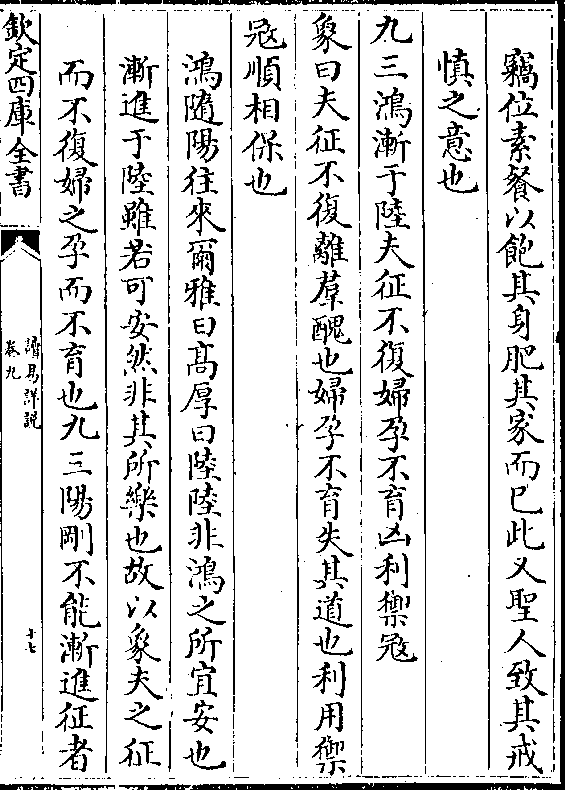 竊位素餐以飽其身肥其家而已此又聖人致其戒
慎之意也
九三鴻漸于陸夫征不復婦孕不育凶利禦寇
象曰夫征不復離羣醜也婦孕不育失其道也利用禦
寇順相保也
鴻隨陽往來爾雅曰髙厚曰陸陸非鴻之所宜安也
漸進于陸雖若可安然非其所樂也故以象夫之征
而不復婦之孕而不育也九三陽剛不能漸進征者
欽定四庫全書
讀易詳説
卷九
十七